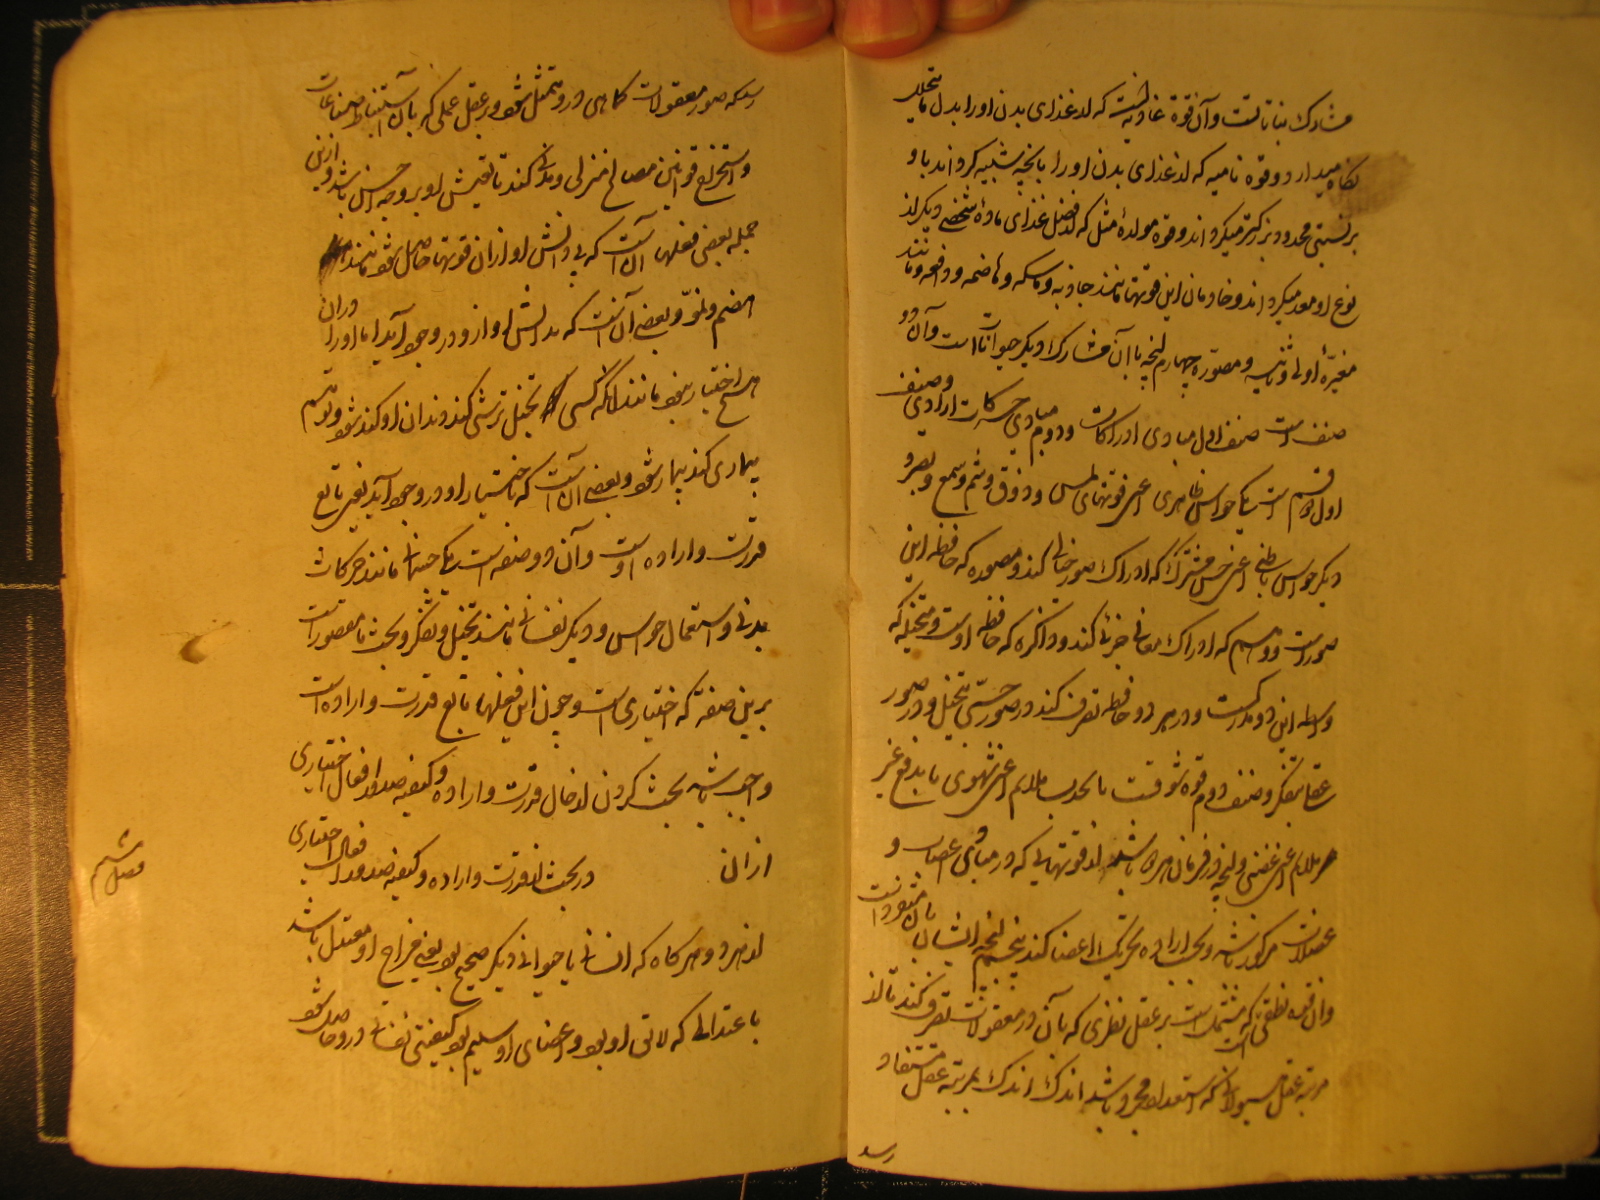 مشارک نباتاتست و آن قوة غاذیه است که از غذای بدن او را بدل ما یتحلل
نگاه میدارد و قوة نامیه که از غذای بدن او را بانچه شبیه کرداند با او
بر نسبتی محدود بزرکتر میکرداند و قوة مولدة مثل که از فضل غذای مادة شخصی دیکر از
نوع او معد میکرداند و خادمان این قوتها مانند جاذبه و ماسکه و هاضمه و دافعه و مانند
مغیرة اولی و ثانیه و مصوره چهارم انچه با آن مشارک دیکر حیواناتست و آن دو
صنف است صنف اول مبادی ادراکات و دوم مبادی حرکات ارادی و صنف
اول دو قسم است یکی حواس ظاهری اعنی قوتهای لمس و ذوق و شم و سمع و بصر و
دیکر حواس باطنی اعنی حس مشترک که ادراک صور خیالی کند و مصوره که حافظه این
صورست و وهم که ادراک معانی جزئی کند و ذاکره که حافظه اوست و متخیله که
واسطه این دو مدرکست و در هر دو حافظه تصرف کند در صور حسی بتخیل و در صور
عقلی بتفکر و صنف دوم قوة شوقیست یا بجذب ملایم اعنی شهوی یا بدفع غیر
ملایم اعنی غضبی و انچه در فرمان هر دو باشد از قوتهایی که در مبادی اعصاب و
عضلات مرکوز باشد و بحسب اراده تحریک اعضا کند پنجم انچه انسان بآن متفردست
و آن قوة نطقی است که مشتملست بر عقل نظری که بآن در معقولات تصرف کند تا از
مرتبه عقل هیولانی که استعداد مجرد باشد اندک اندک بمرتبه عقل مستفاد
رسد
رسد که صور معقولات کماهی درو متمثل شود و بر عقل عملی که بآن استنباط صناعات
و استخراج قوانین مصالح منزلی و مدنی کند تا تعیش او بر وجه احسن باشد و ازین
جمله بعضی فعلها آنست که بی دانش او از آن قوتها حاصل شود مانند
هضم و نمو و بعضی آنست که بدانش او ازو در وجود آید اما او را در آن
هیچ اختیار نبود مانند آنکه کسی تخیل ترشی کند دندان او کند شود و توهم
بیماری کند بیمار شود و بعضی آنست که باختیار او در وجود آید یعنی تابع
قدرت و اراده اوست و آن دو صنف است یکی جسمانی مانند حرکات
بدنی و استعمال حواس و دیکر نفسانی مانند تخیل و تفکر و بحث ما مقصورست
برین صنف که اختیاری است و چون این فعلها تابع قدرت و اراده است
واجب باشد بحث کردن از حال قدرت و اراده و کیفیه صدور افعال اختیاری
از آن در بحث از قدرت و اراده و کیفیه صدور افعال اختیاری
فصل ششم
از هر دو هرکاه که انسانی یا حیوانی دیکر صحیح بود یعنی مزاج او معتدل باشد
باعتدالی که لایق او بود و اعضای او سلیم بود کیفیتی نفسانی درو حاصل شود